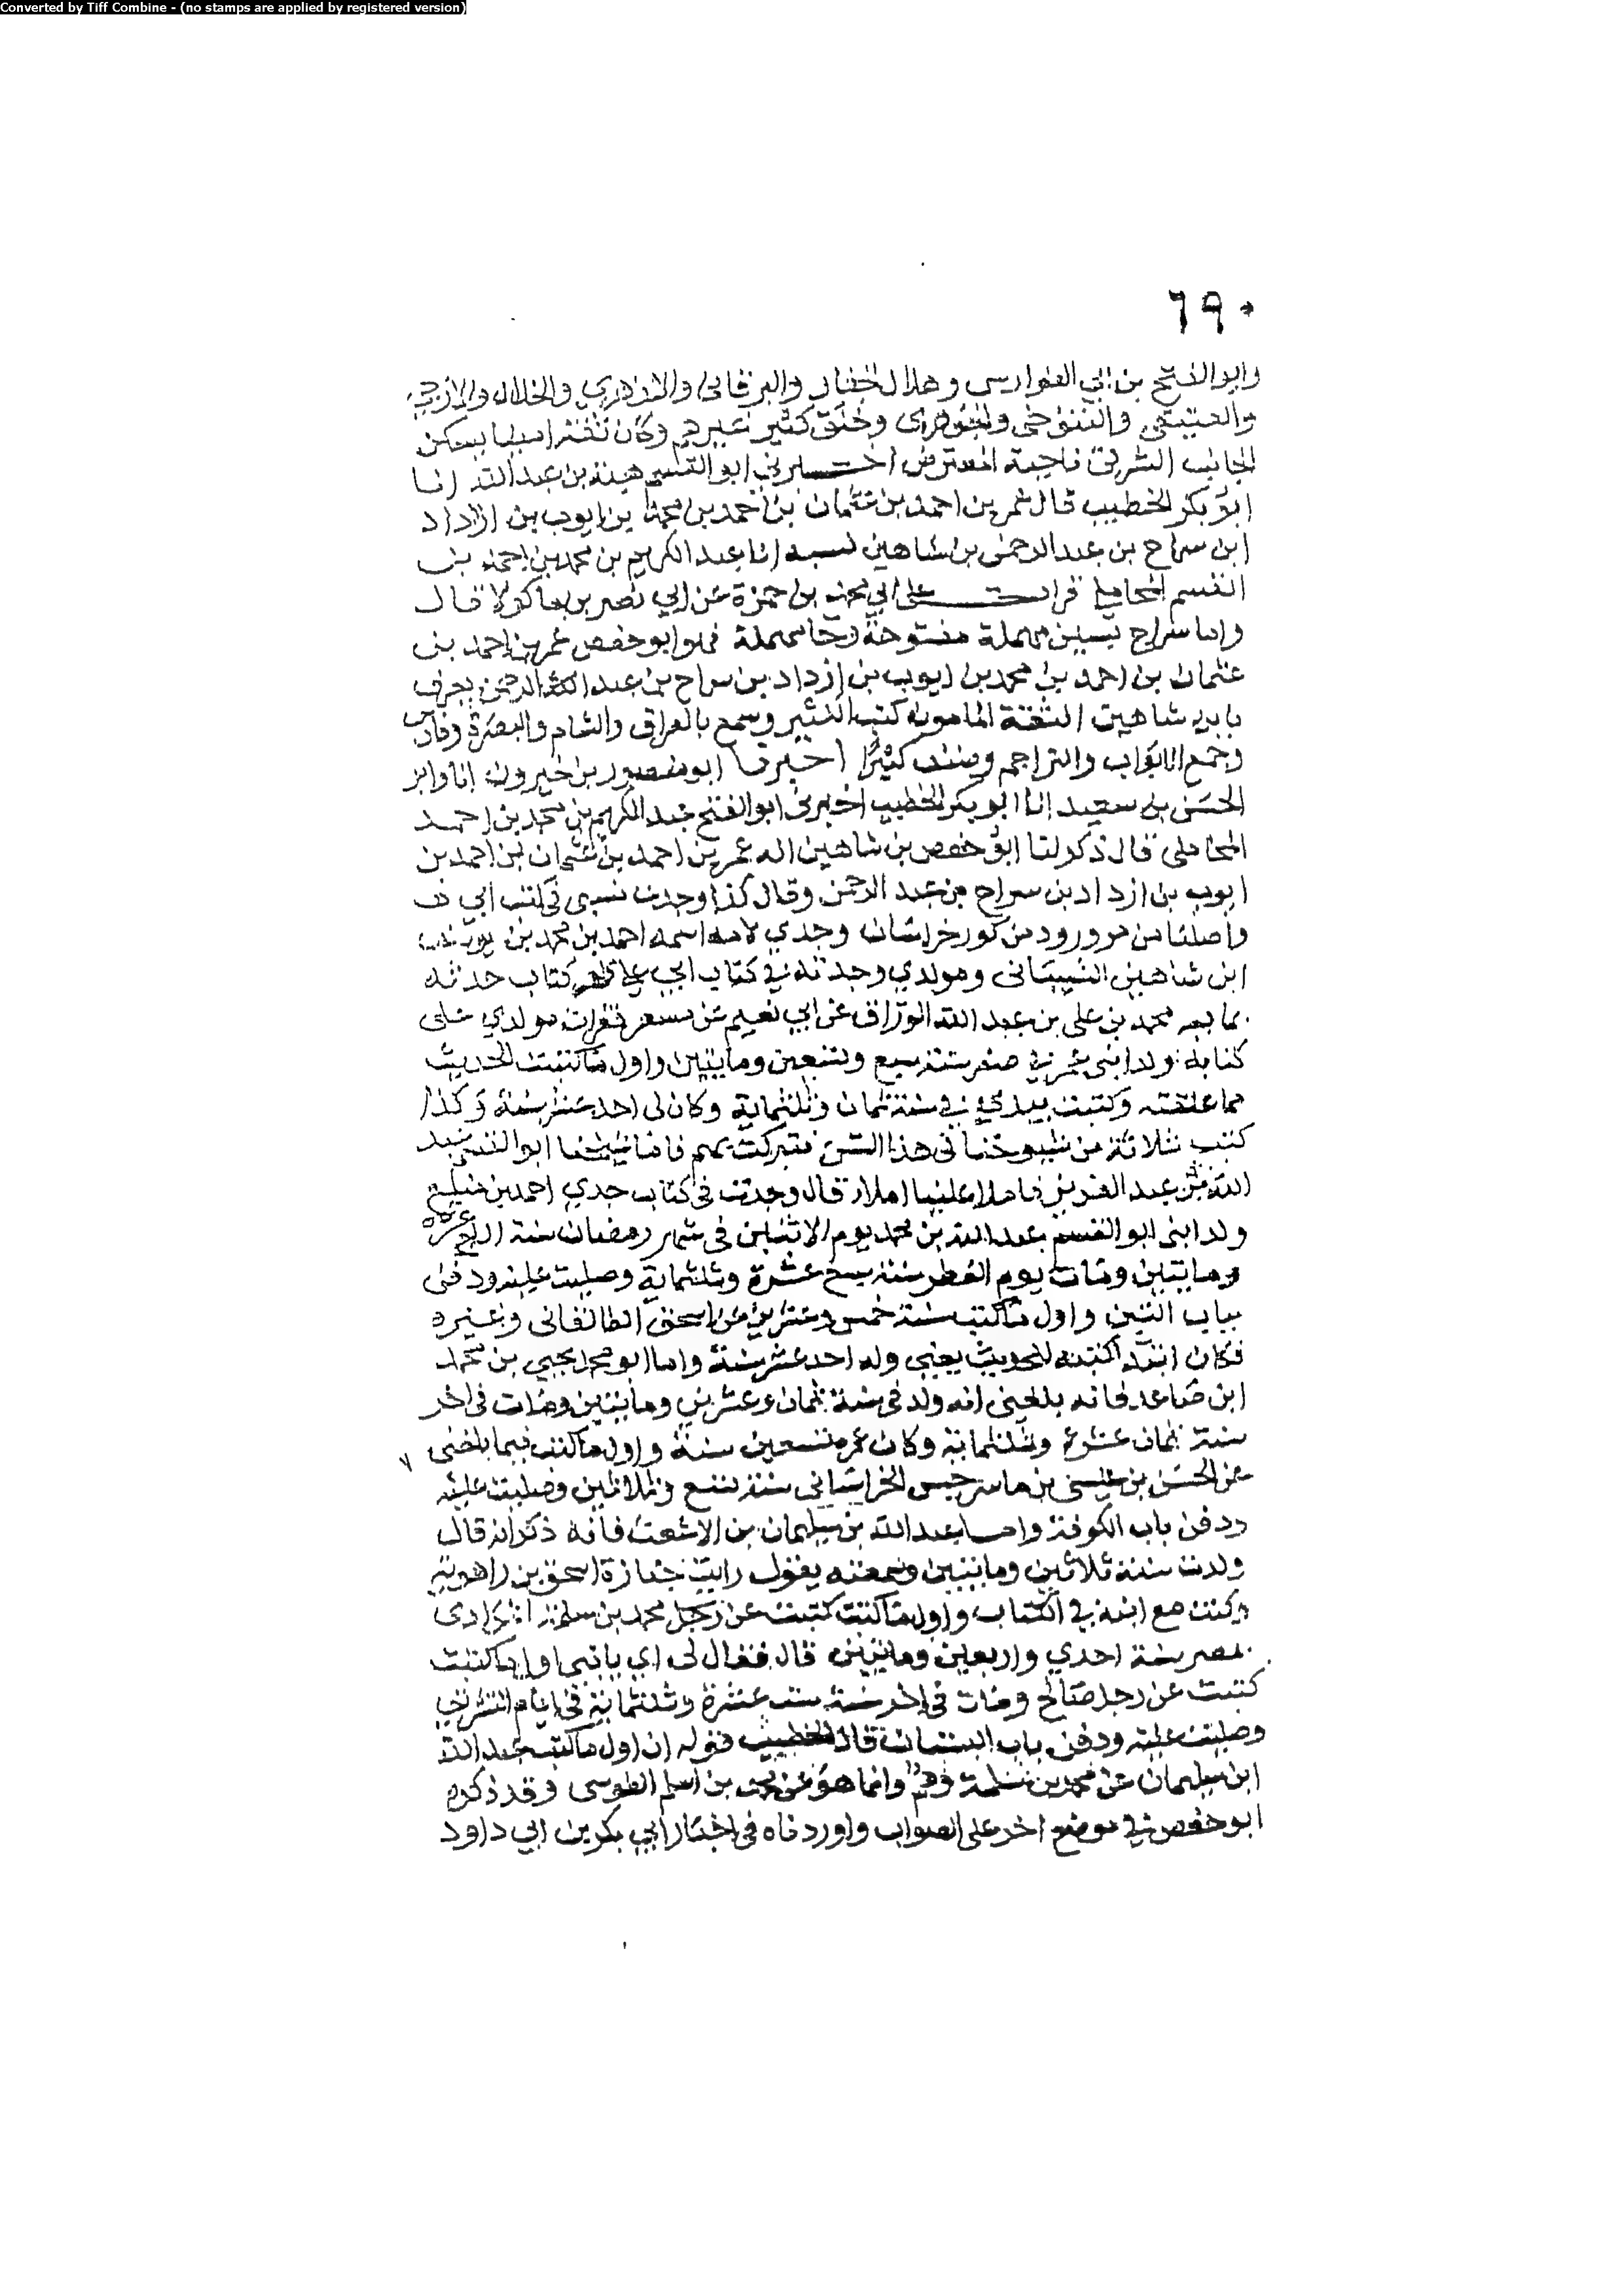 Converted by Tiff Combine - (no stamps are applied by registered version)
٦٩٠
وابو الفتح بن ابي الفوارس وهلال الحفار والبرقاني والازهري والخلال والازجي
والعتيقي والتنوخي والجوهري وخلق كثير غيرهم وكان ثقة امينا يسكن
الجانب الشرقي ناحية المعترض اخبرني ابو القسم هبة بن عبد الله انا
ابو بكر الخطيب قال عمر بن احمد بن عثمان بن احمد بن محمد بن ايوب بن ازداد
ابن سراح بن عبد الرحمن بن شاهين نسبه انا عبد الكريم بن محمد بن احمد بن
القسم المحاملي قرات على ابي محمد بن حمزة عن ابي نصر بن ماكولا قال
واما سراح بسين مهملة مفتوحة وحا مهملة فهو ابو حفص عمر بن احمد بن
عثمان بن احمد بن محمد بن ايوب بن ازداد بن سراح بن عبد الرحمن يعرف
بابن شاهين الثقة المامون كتب الكثير وسمع بالعراق والشام والبصرة وفارس
وجمع الابواب والتراجم وصنف كثيرا اخبرنا ابو منصور بن خيرون انا وابو
الحسن بن سعيد انا ابو بكر الخطيب اخبرني ابو الفتح عبد الكريم بن محمد بن احمد
المحاملي قال ذكر لنا ابو حفص بن شاهين انه عمر بن احمد بن عثمان بن احمد بن
ايوب بن ازداد بن سراح بن عبد الرحمن وقال كذا وجدت نسبي في كتب ابي
واصلنا من مرورود من كور خراسان وجدي لامه اسمه احمد بن محمد بن يوسف
ابن شاهين الشيباني ومولدي وجدته في كتاب ابي على ظهر كتاب حدثه
بما بعه محمد بن علي بن عبد الله الوراق عن ابي نعيم عن مسعر فقرات مولدي على
كتابه ولد ابني عمر في صفر سنة سبع وتسعين ومايتين واول ما كتبت الحديث
مما علقته وكتبت بيدي في سنة ثمان وثلثماية وكان لي احد عشر سنة وكذا
كتب ثلاثة من شيوخنا في هذا السن فتبركت بهم فاما شيخنا ابو القسم عبد
الله بن عبد العزيز فاملا علينا املاء قال وجدت في كتاب جدي احمد بن منيع
ولد ابني ابو القسم عبد الله بن محمد يوم الاثنين في شهر رمضان سنة اربع عشرة
ومايتين ومات يوم الفطر سنة سبع عشرة وثلثماية وصليت عليه ودفن
بباب التبن واول ما كتب سنة خمس وعشرين عن اسحق الطالقاني وغيره
فكان ابتدا كتبته للحديث يعني وله احد عشر سنة واما ابو محمد يحيى بن محمد
ابن صاعد فانه بلغني انه ولد في سنة ثمان وعشرين ومايتين ومات في اخر
سنة ثمان عشرة وثلثماية وكان عمره تسعين سنة واول ما كتب فيما بلغني
عن الحسن بن عيسى بن ماسرجس الخراساني سنة تسع وثلاثين وصليت عليه
ودفن باب الكوفة واما عبد الله بن سليمان بن الاشعث فانه ذكر انه قال
ولدت سنة ثلاثين ومايتين وسمعته يقول رايت جنازة اسحق بن راهويه
وكنت مع ابنه في الكتاب واول ما كتبت كتبت عن رجل محمد بن سلمة المرادي
بمصر سنة احدي واربعين ومايتين قال فقال لي ابي يا بني اول ما كتبت
كتبت عن رجل صالح ومات في اخر سنة ست عشرة وثلثماية في ايام التشريق
وصليت عليه ودفن باب البستان قال الخطيب فقوله ان اول ما كتب عبد الله
ابن سليمان عن محمد بن سلمة وهم وانما هو عن محمد بن اسلم الطوسي وقد ذكره
ابو حفص في موضع اخر على الصواب واوردناه في اخبار ابي بكر بن ابي داود